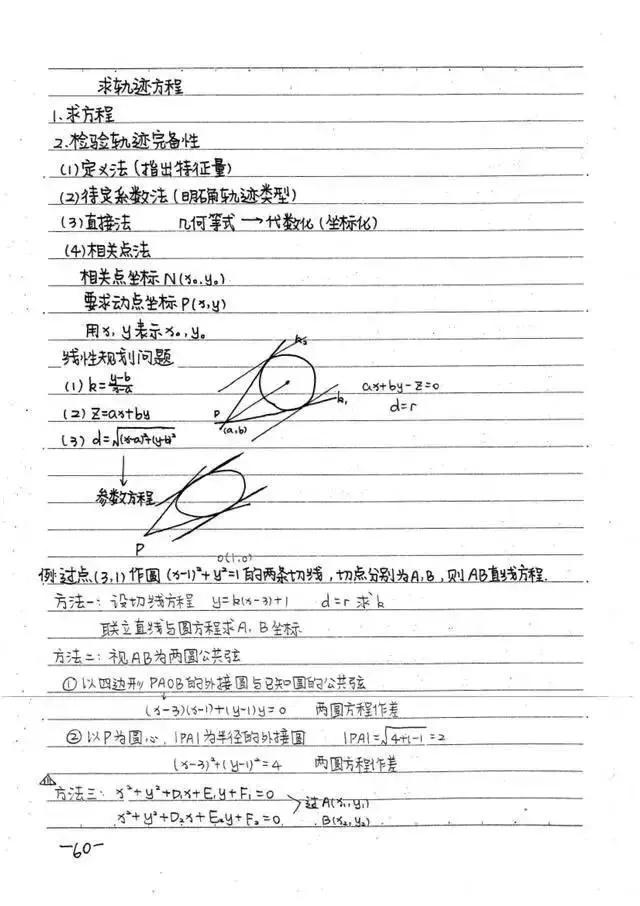 求轨迹方程
1.求方程
2.检验轨迹完备性
(1)定义法(指出特征量)
(2)待定系数法(明确轨迹类型)
(3)直接法 几何等式→代数化(坐标化)
(4)相关点法
相关点坐标N(x₀,y₀)
要求动点坐标P(x,y)
用x,y表示x₀,y₀
线性规划问题
(1) k=(y-b)/(x-a)
(2) z=ax+by
(3) d=√((x-a)²+(y-b)²)
k₂
k₁
P
(a,b)
ax+by-z=0
d=r
参数方程
P
O(1,0)
例 过点(3,1)作圆(x-1)²+y²=1的两条切线,切点分别为A,B,则AB直线方程.
方法一:设切线方程 y=k(x-3)+1 d=r 求k
联立直线与圆方程求A,B坐标
方法二:视AB为两圆公共弦
①以四边形PAOB的外接圆与已知圆的公共弦
(x-3)(x-1)+(y-1)y=0 两圆方程作差
②以P为圆心,|PA|为半径的外接圆 |PA|=√(4+1-1)=2
(x-3)²+(y-1)²=4 两圆方程作差
方法三:x²+y²+D₁x+E₁y+F₁=0
x²+y²+D₂x+E₂y+F₂=0
过A(x₁,y₁)
B(x₂,y₂)
-60-